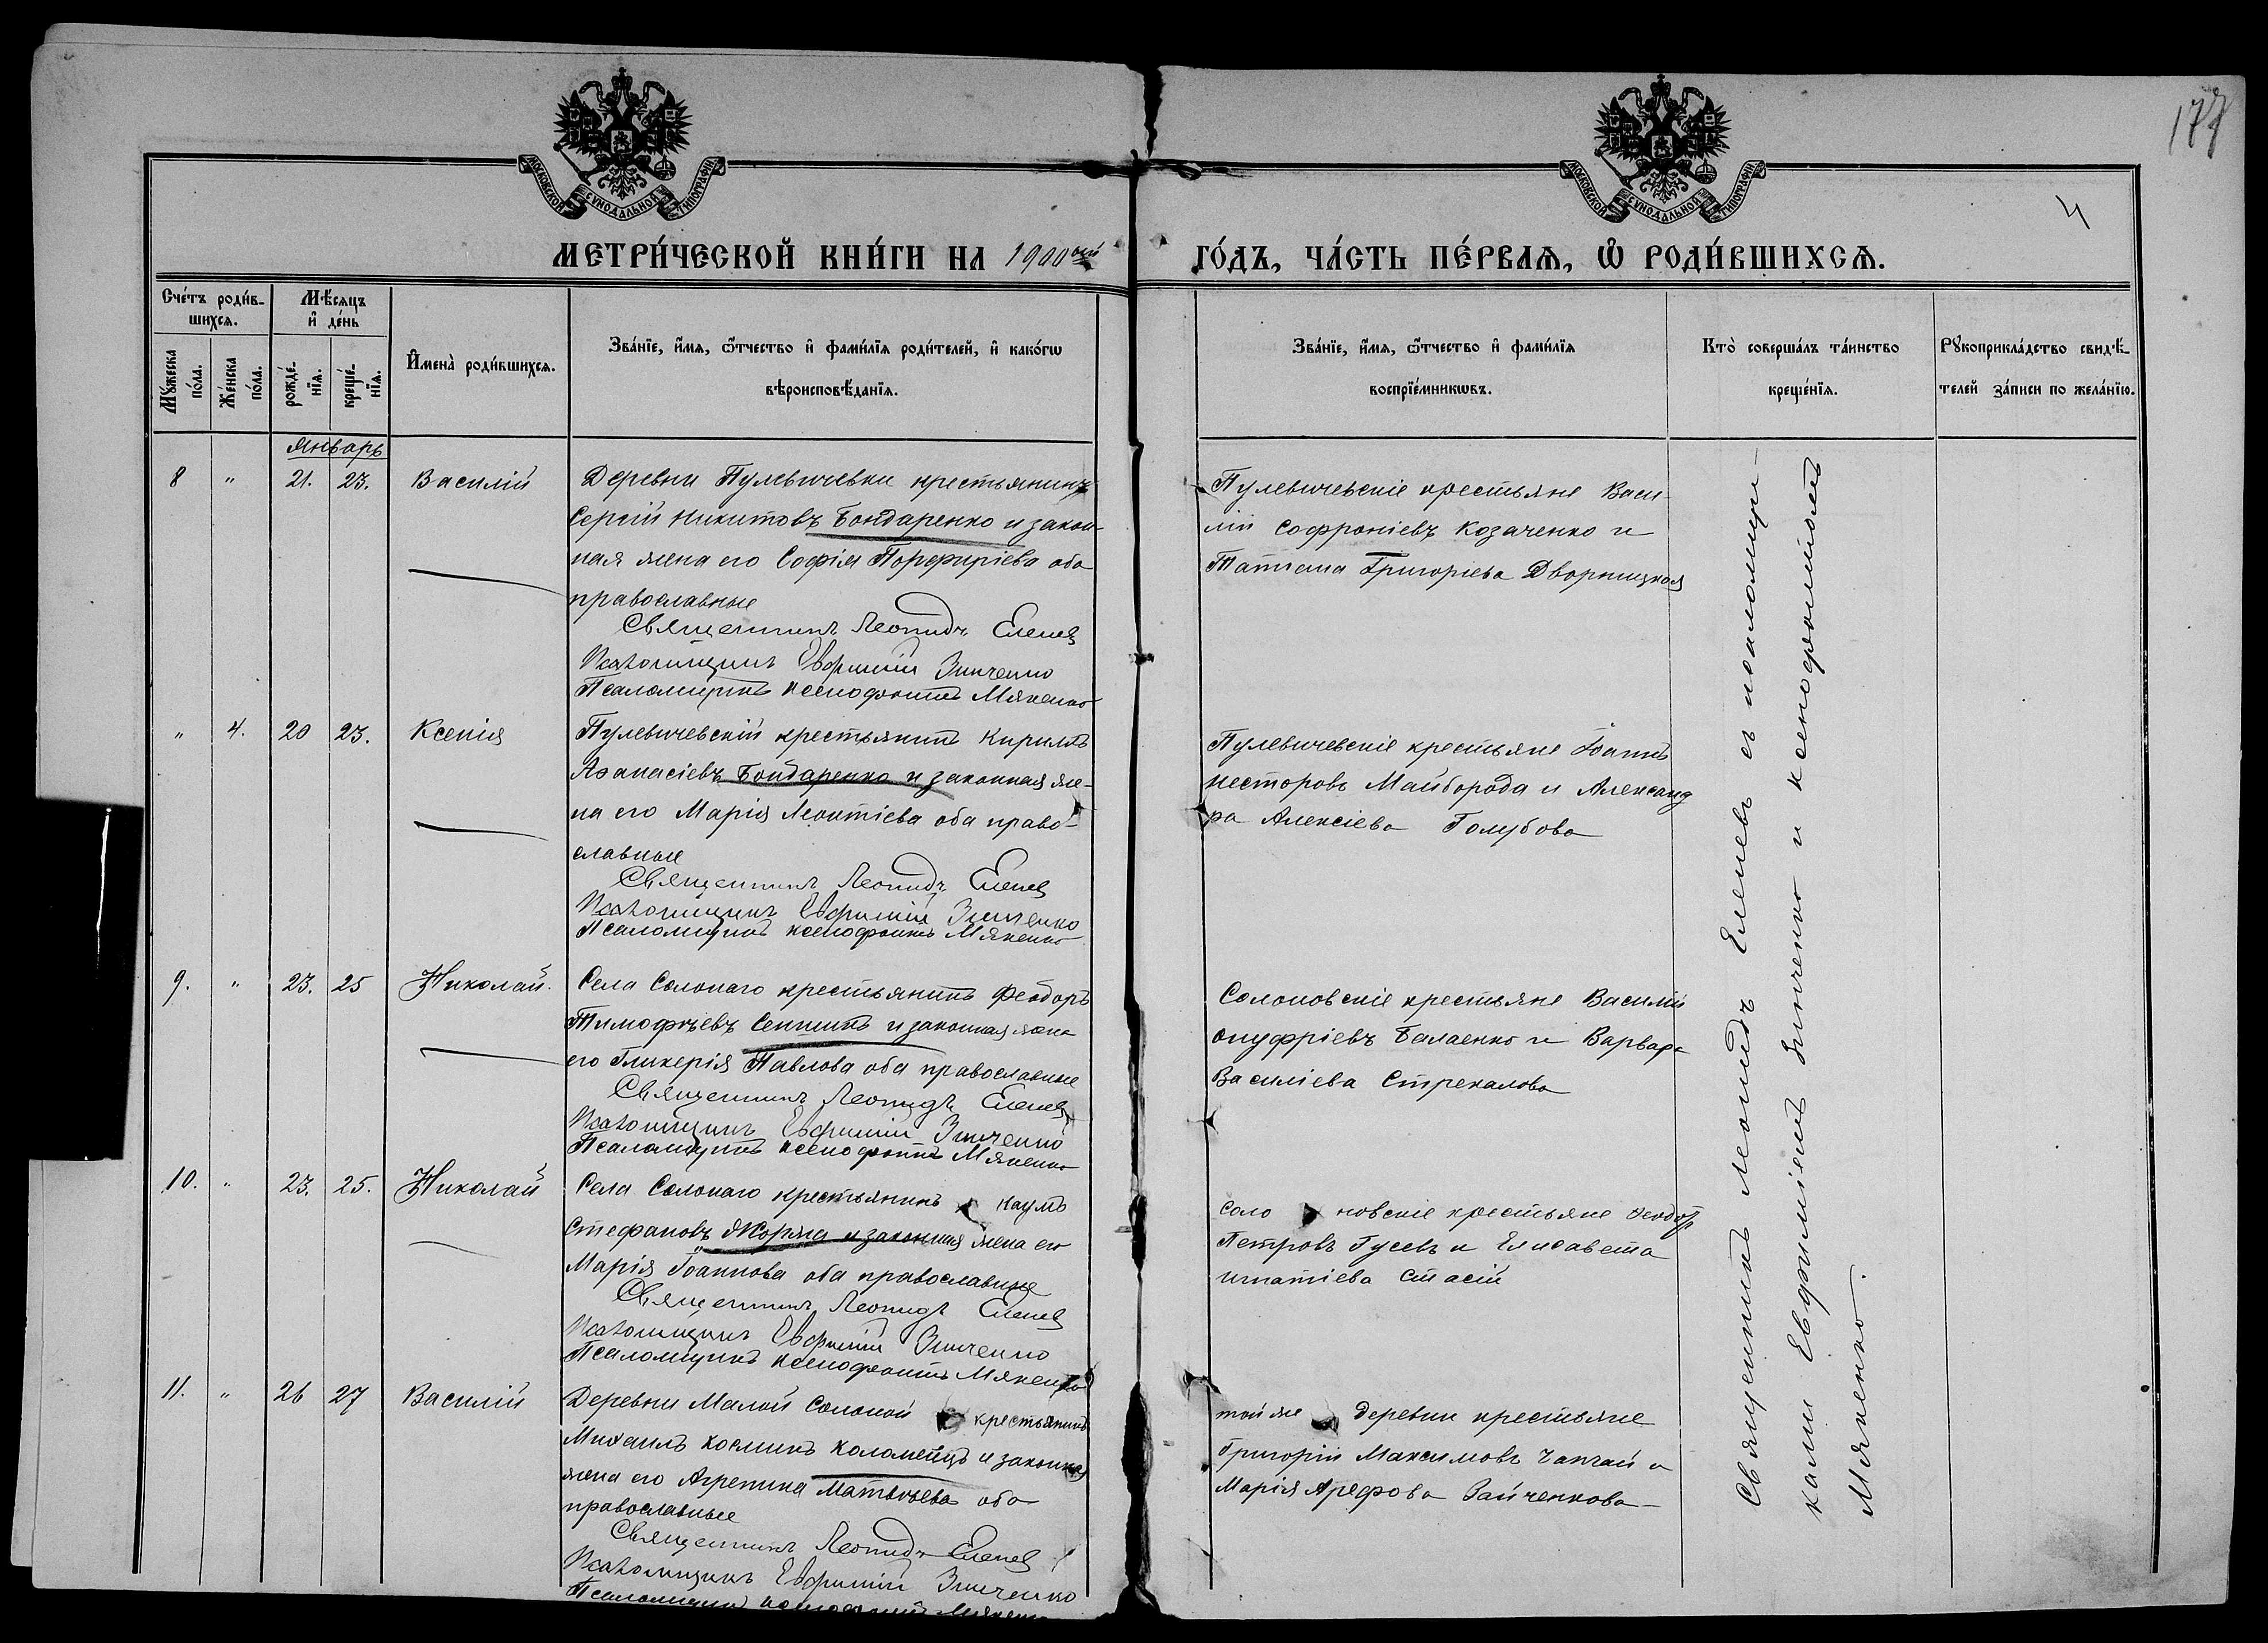 177
4
МОСКОВСКОЙ СУНОДАЛЬНОЙ ТИПОГРАФІИ
МОСКОВСКОЙ СУНОДАЛЬНОЙ ТИПОГРАФІИ
МЕТРИ́ЧЕСКОЙ КНИ́ГИ НА 1900 ГО́ДЪ, ЧА́СТЬ ПЕ́РВАѦ, Ѡ РОДИ́ВШИХСѦ.
Сче́тъ роди́в-
шихсѧ.
Мѣ́сѧцъ
и҆ де́нь
Мꙋ́жеска
по́ла.
Же́нска
по́ла.
рожде́-
нїѧ.
креще́-
нїѧ.
И҆мена̀ роди́вшихсѧ.
Зва́нїе, и҆́мѧ, ѻ҆́тчество и҆ фами́лїѧ роди́телей, и҆ како́гѡ
вѣроисповѣ́данїѧ.
Зва́нїе, и҆́мѧ, ѻ҆́тчество и҆ фами́лїѧ
воспрїе́мникѡвъ.
Кто̀ соверша́лъ та́инство
креще́нїѧ.
Рꙋкоприкла́дство свидѣ́-
телей за́писи по жела́нїю.
Январь
8 " 21. 23. Василій
Деревни Пулевичевки крестьянинъ
Сергій Никитовъ Бондаренко и закон-
ная жена его Софія Порфиріева оба
православные
Священникъ Леонидъ Еленев
Псаломщикъ Евфимій Зинченко
Псаломщикъ Ксенофонтъ Мякенко
Пулевичевскіе крестьяне Васи-
лій Софроніевъ Козаченко и
Татіана Григоріева Дворницкая
" 4. 20 23. Ксенія
Пулевичевскій крестьянинъ Кириллъ
Аѳанасіевъ Бондаренко и законная же-
на его Марія Леонтіева оба право-
славные
Священникъ Леонидъ Еленев
Псаломщикъ Евфимій Зинченко
Псаломщикъ Ксенофонтъ Мякенко
Пулевичевскіе крестьяне Іоаннъ
Несторовъ Майборода и Александ
ра Алексіева Голубова
9. " 23. 25 Николай.
Села Солонаго крестьянинъ Феодоръ
Тимофѣевъ и законная жена
его Гликерія Павлова оба православные
Священникъ Леонидъ Еленев
Псаломщикъ Евфимій Зинченко
Псаломщикъ Ксенофонтъ Мякенко
Солоновскіе крестьяне Василій
Онуфріевъ Балаенко и Варвара
Василіева Стрекалова
10. " 23. 25. Николай
Села Солонаго крестьянинъ Наумъ
Стефановъ и законная жена его
Марія Іоаннова оба православные
Священникъ Леонидъ Еленев
Псаломщикъ Евфимій Зинченко
Псаломщикъ Ксенофонтъ Мякенко
Соло новскіе крестьяне Феодор
Петровъ Гусевъ и Елисавета
Игнатіева Стасій
11. " 26 27 Василій
Деревни Малой Солоной крестьянинъ
Михаилъ Косминъ Коломеицъ и законная
жена его Агрепина Матвѣева оба
православные
Священникъ Леонидъ Еленев
Псаломщикъ Евфимій Зинченко
Псаломщикъ Ксенофонтъ Мякенко
той же деревни крестьяне
Григорій Максимовъ Чапчай и
Марія Арефова Зайченкова
Священникъ Леонидъ Еленевъ съ псаломщи-
ками Евфиміемъ Зинченко и Ксенофонтомъ
Мякенко.